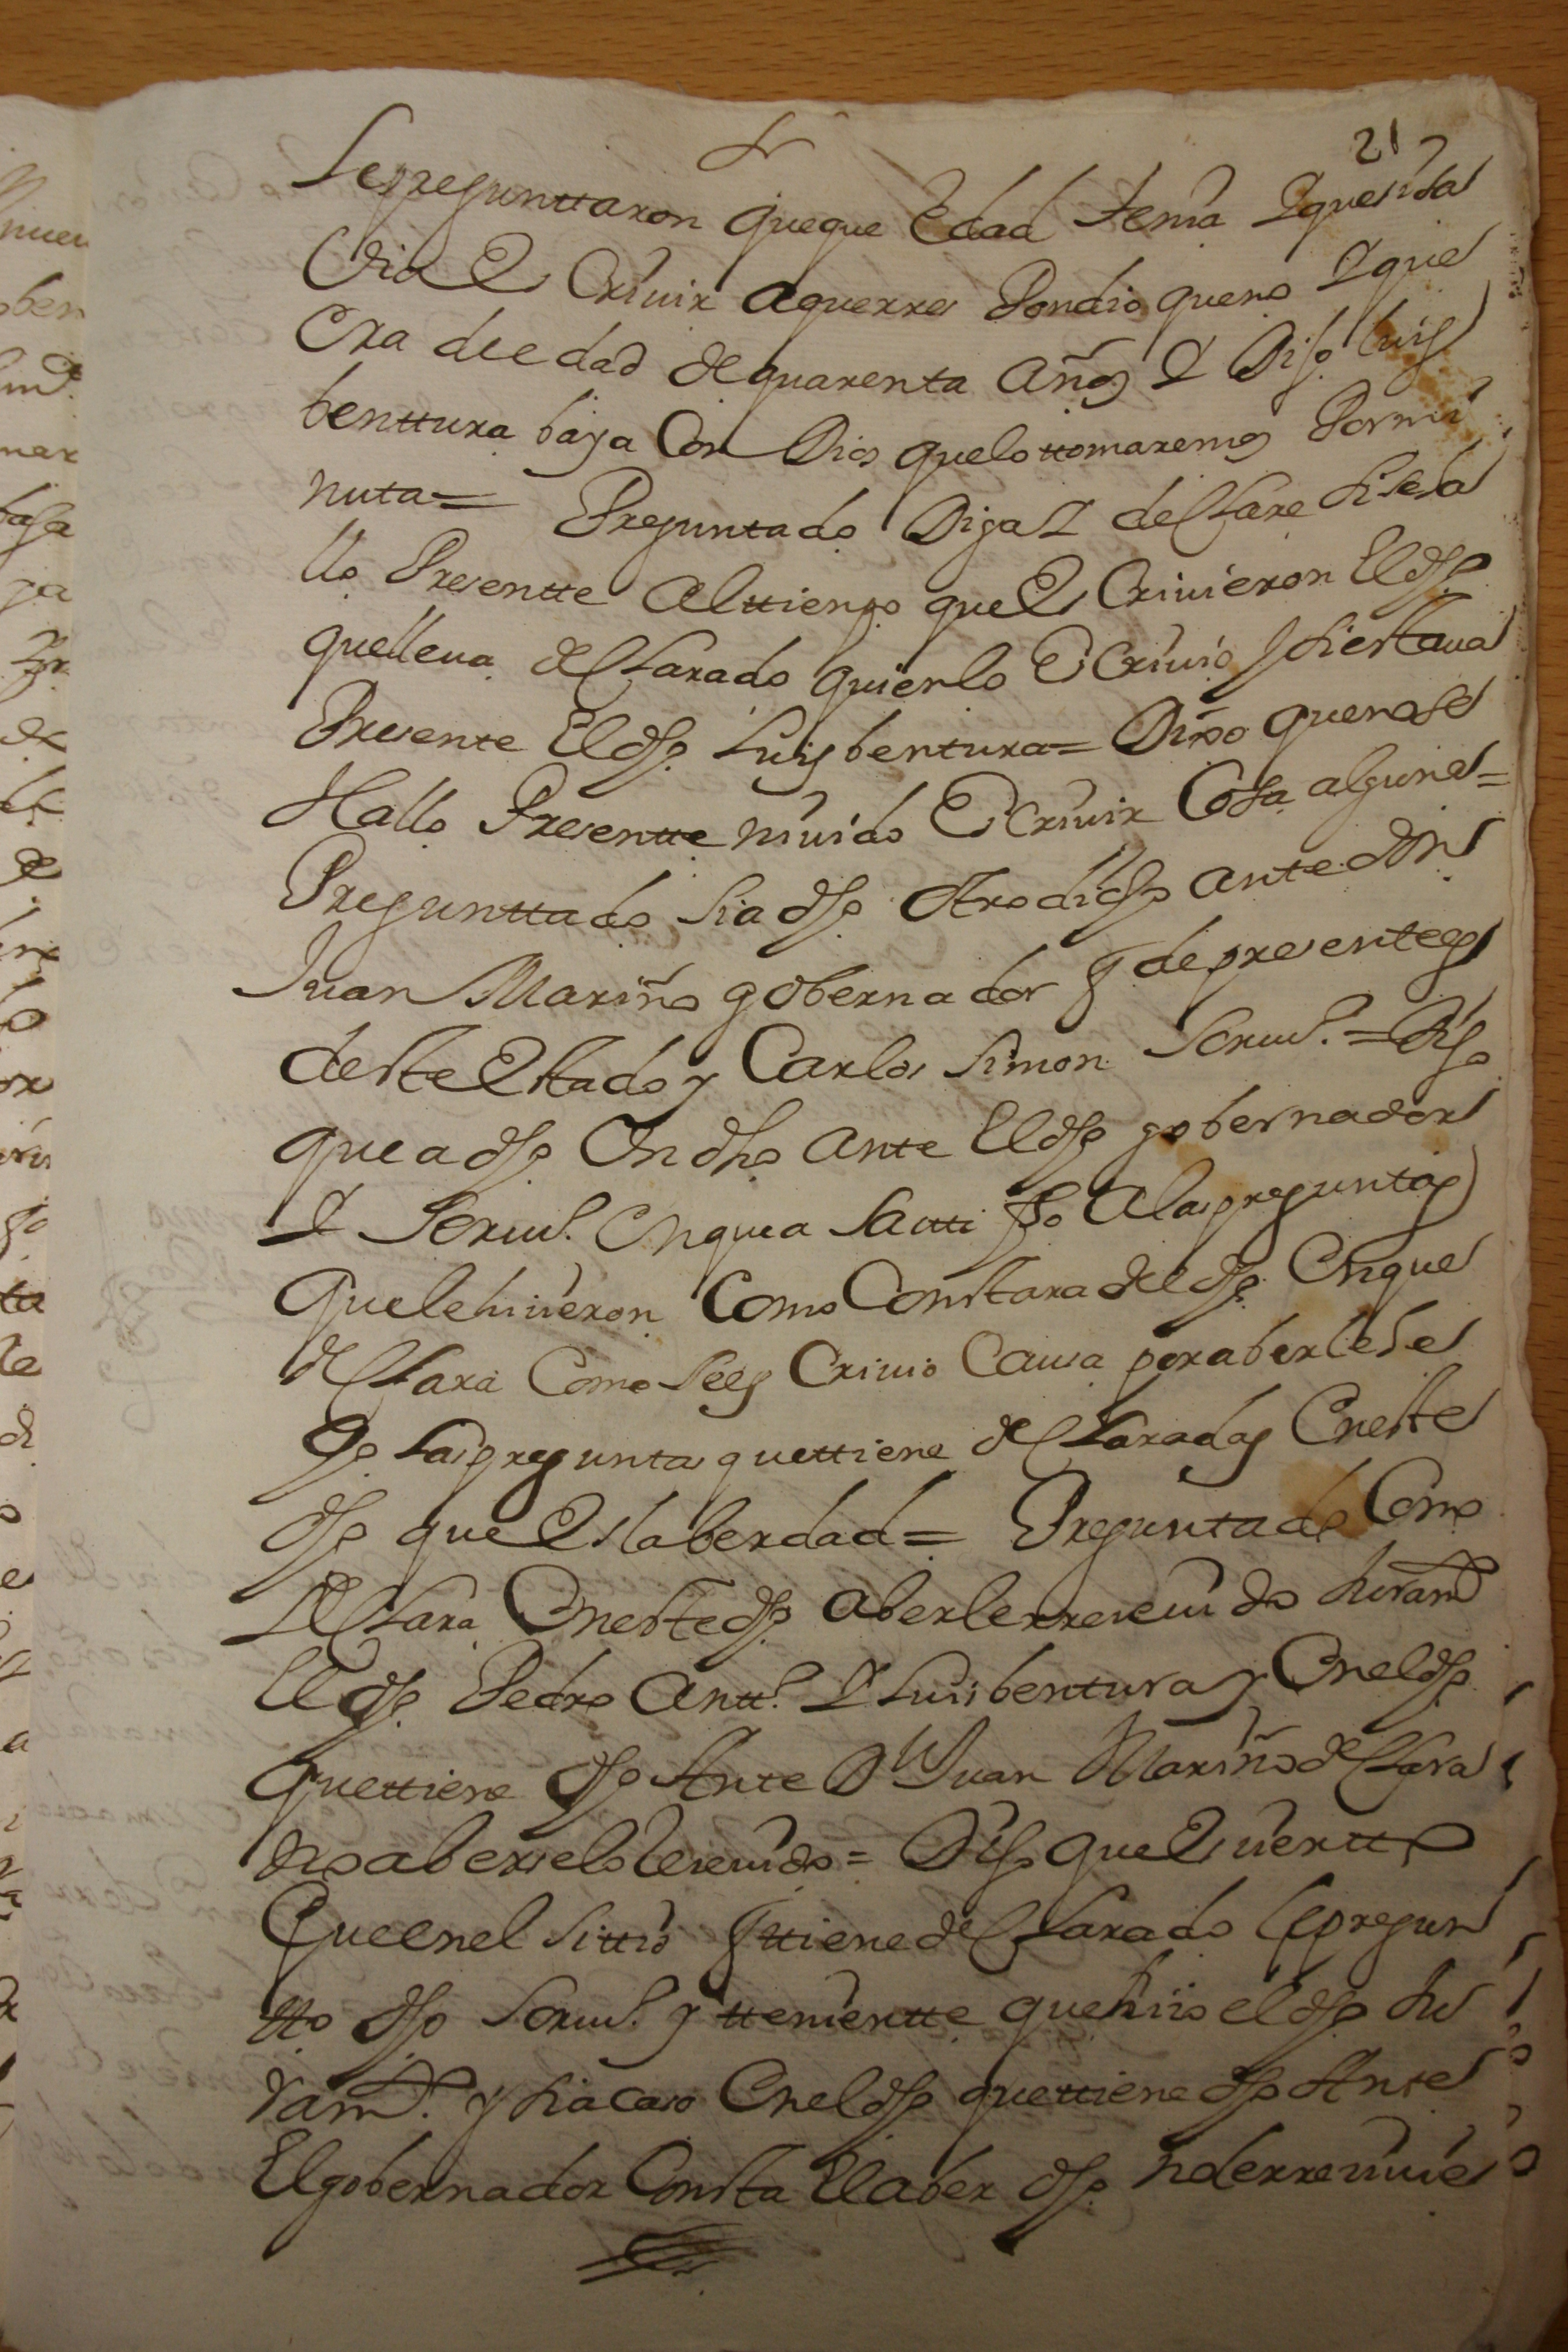 21
Lepregunttaron queque Edad tenia Y que si sa
Via Es Criuir aquerres Pondio queno Y que
Era de edad de quarenta años Y Dijo luis
benttura baya Con Dios quelo ttomaremos Pormi
nuta= Preguntado Diga Y declare si se a
llo Presentte Alttienpo que Es Criuieron El dho
quelleua declarado quienlo Escriuio Y si estaua
Presente El dho Luis bentura= Dixo queno se
Hallo Presentte niuido Escriuir Cosa alguna=
Preguntado si a dho Otro dicho ante don
Juan Mariño gobernador q de presente es
deste Estado y Carlos Simon Scriuº = Dijo
que a dho Un dho ante El dho gobernador
Y Scriuº En que a Satti fho A las preguntas
que le hiçieron Como Constara del dho En que
declara Como se es Criuio Causa por aberle he
cho las preguntas quettiene declaradas En este
dho que Es la berdad= Preguntado Como
declara En este dho aberle rreceuido Juramtº
El dho Pedro Anttº Y Luis bentura y En el dho
quettiene dho Ante Dn Juan Mariño declara
no aberselo Receuido = Dijo que Es uertto
Que en el sittio q ttiene declarado le pregun
tto dho Scriuº y tteniente que hiço el dho Ju
ramtº. y si a caso En el dho quettiene dho Ante
El gobernador Consta El aber dho no le rreciuie